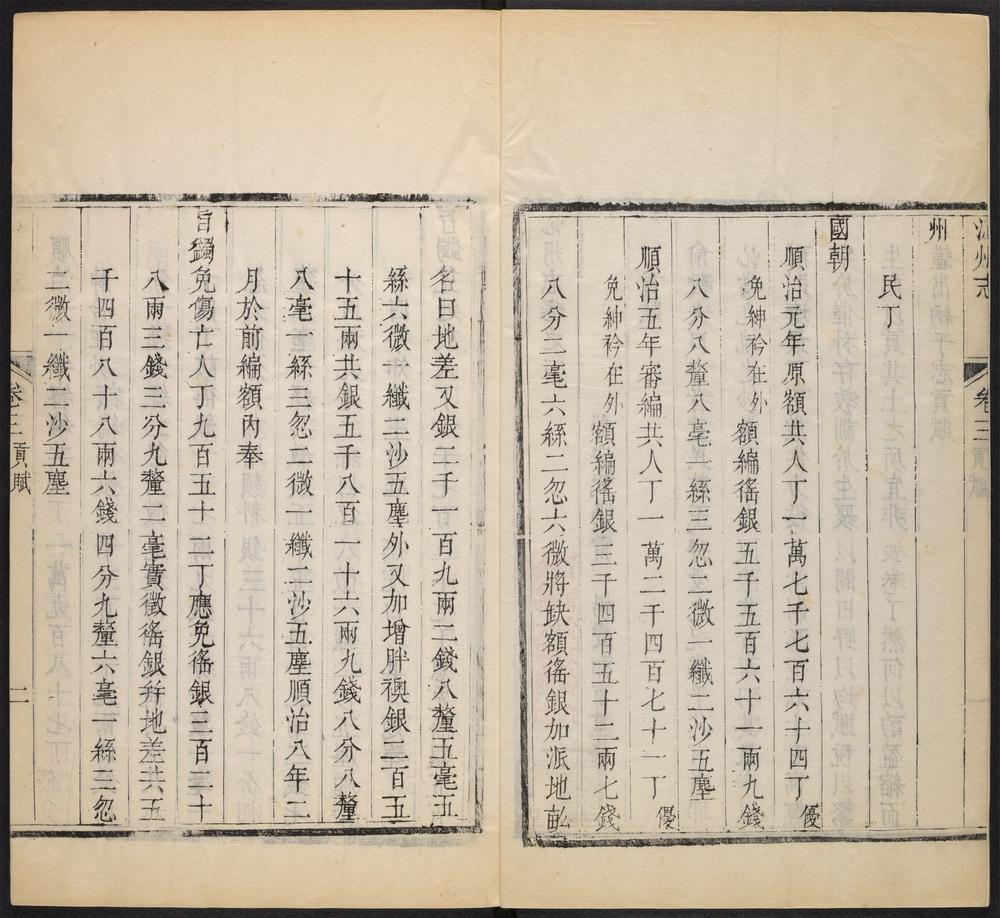 州志
卷三貢賦
州
民丁
國朝
順治元年原額共人丁一萬七千七百六十四丁優
免紳衿在外額編徭銀五千五百六十一兩九錢
八分八釐八毫一絲三忽二微一纖二沙五塵
順治五年審編共人丁一萬二千四百七十一丁優
免紳衿在外額編徭銀三千四百五十二兩七錢
八分二毫六絲二忽六微將缺額徭銀加派地畝
名曰地差又銀二千一百九兩二錢八釐五毫五
絲六微一纖二沙五塵外又加增胖襖銀二百五
十五兩共銀五千八百一十六兩九錢八分八釐
八毫一絲三忽二微一纖二沙五塵順治八年二
月於前編額內奉
旨蠲免傷亡人丁九百五十二丁應免徭銀三百二十
八兩三錢三分九釐二毫實徵徭銀并地差共五
千四百八十八兩六錢四分九釐六毫一絲三忽
二微一纖二沙五塵
卷三貢賦
二